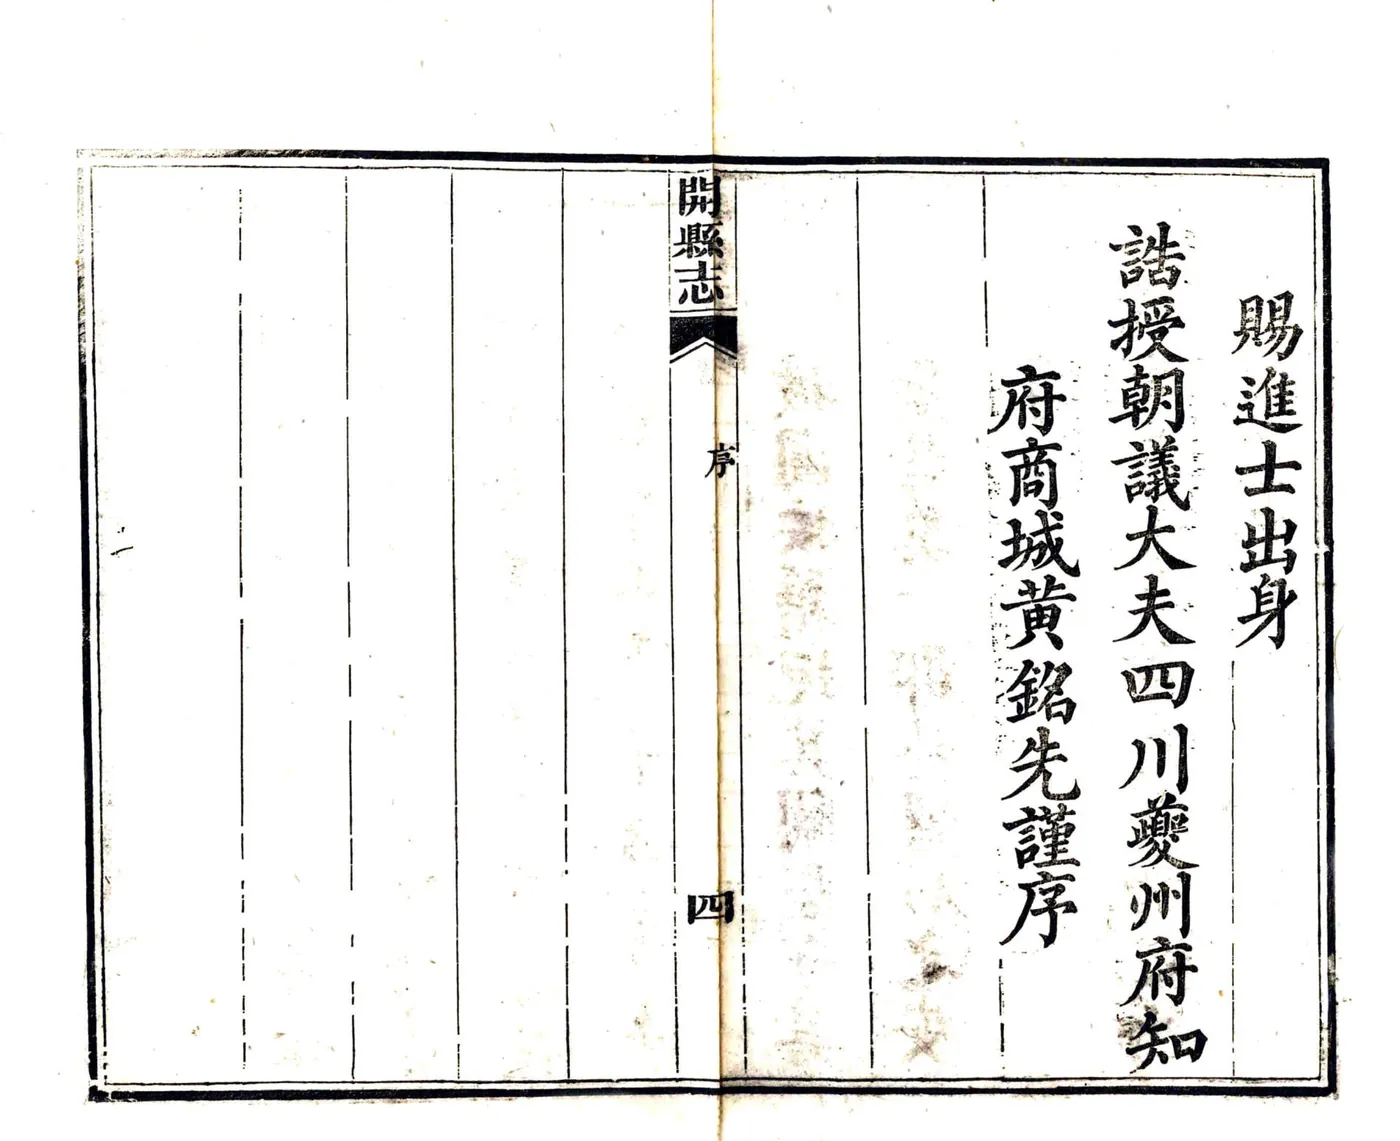 賜進士出身
誥授朝議大夫四川夔州府知
府商城黃銘先謹序
開縣志
序
四